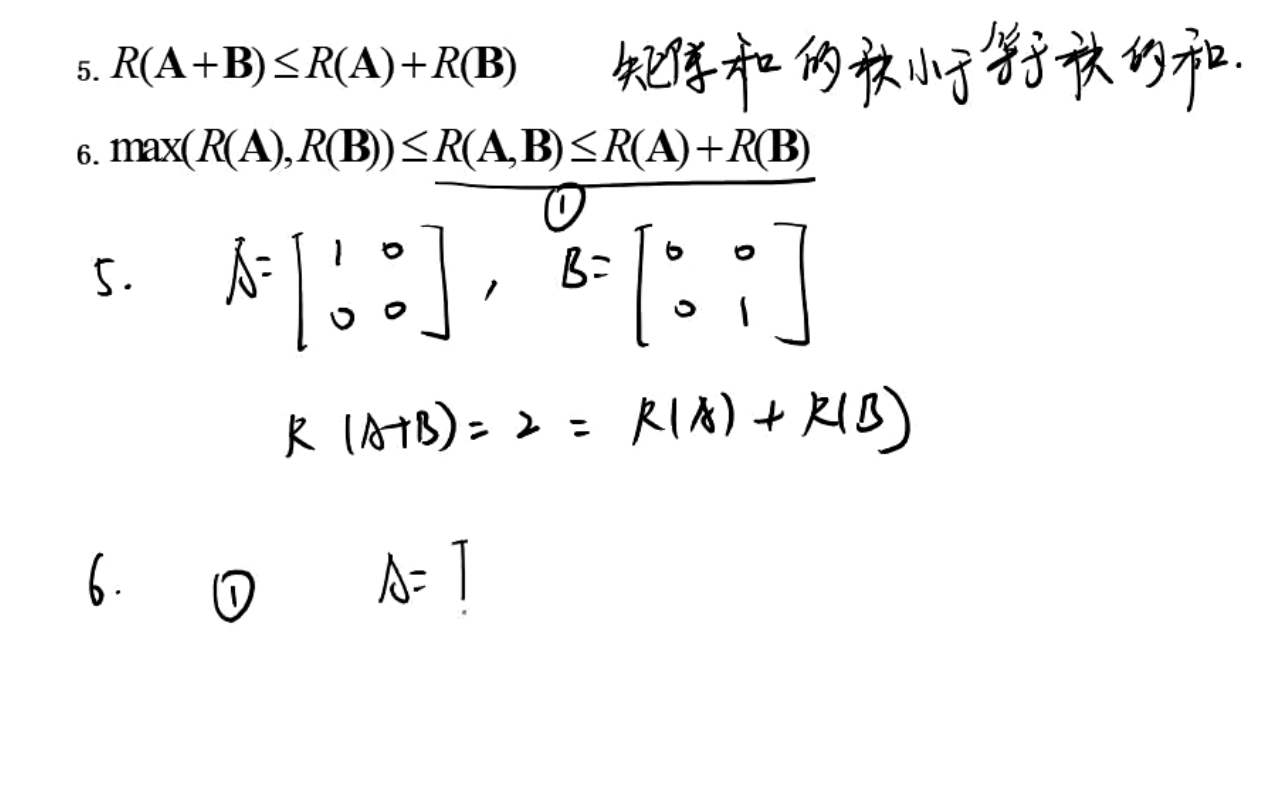 5. R(A+B)≤R(A)+R(B) 矩阵和的秩小于等于秩的和.
6. max(R(A),R(B))≤R(A,B)≤R(A)+R(B)
①
5. A=[1 0 0 0], B=[0 0 0 1]
R(A+B)=2=R(A)+R(B)
6. ① A=[